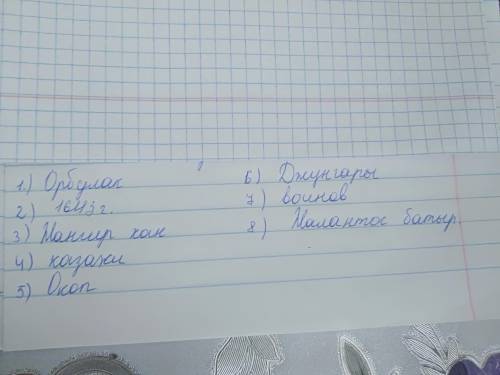 1.) Орбулак
2) 1643 г.
3) Жангир хан
4) казахи
5) Окоп
6) Джунгары
7) воинов
8) Жалантос батыр.